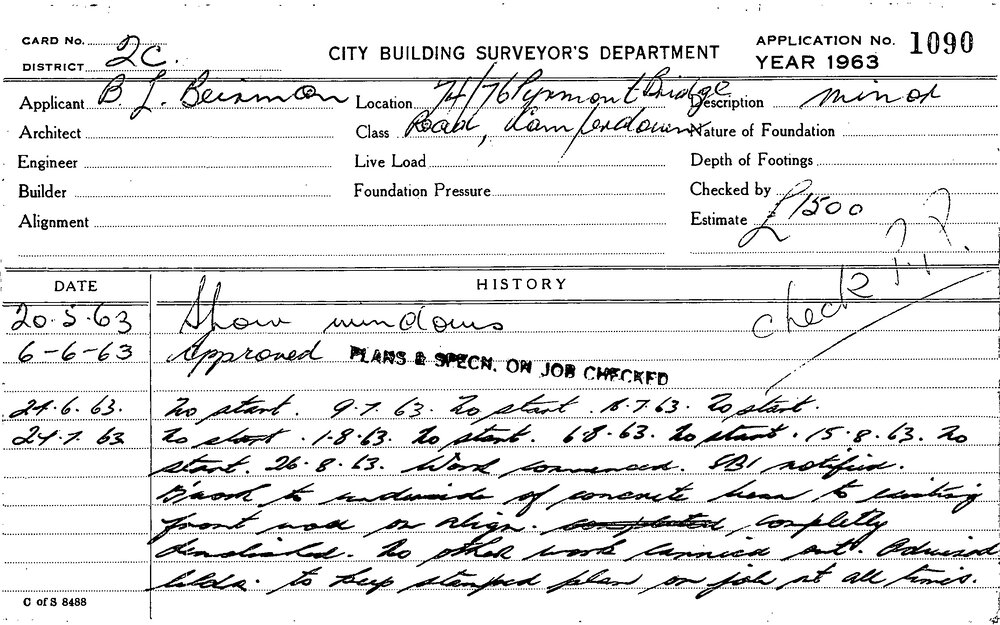 CARD No.
DISTRICT 2C.
CITY BUILDING SURVEYOR'S DEPARTMENT
APPLICATION No. 1090
YEAR 1963
Applicant B. L. Beirman Location 74/76 Pyrmont Bridge Description minor
Architect Class Road, Camperdown Nature of Foundation
Engineer Live Load Depth of Footings
Builder Foundation Pressure Checked by
Alignment Estimate £1500
check P.P.
DATE HISTORY
20.5.63 Show windows
6-6-63 Approved PLANS & SPECN. ON JOB CHECKED
24.6.63. No start. 9.7.63. No start. 18.7.63. No start.
24.7.63 No start. 1.8.63. No start. 6.8.63. No start. 15.8.63. No
start. 26.8.63. Work commenced. SBI notified.
B'work to underside of concrete beam to existing
front wall on align. completed completly
demolished. No other work carried out. Advised
bldr. to keep stamped plan on job at all times.
C of S 8488